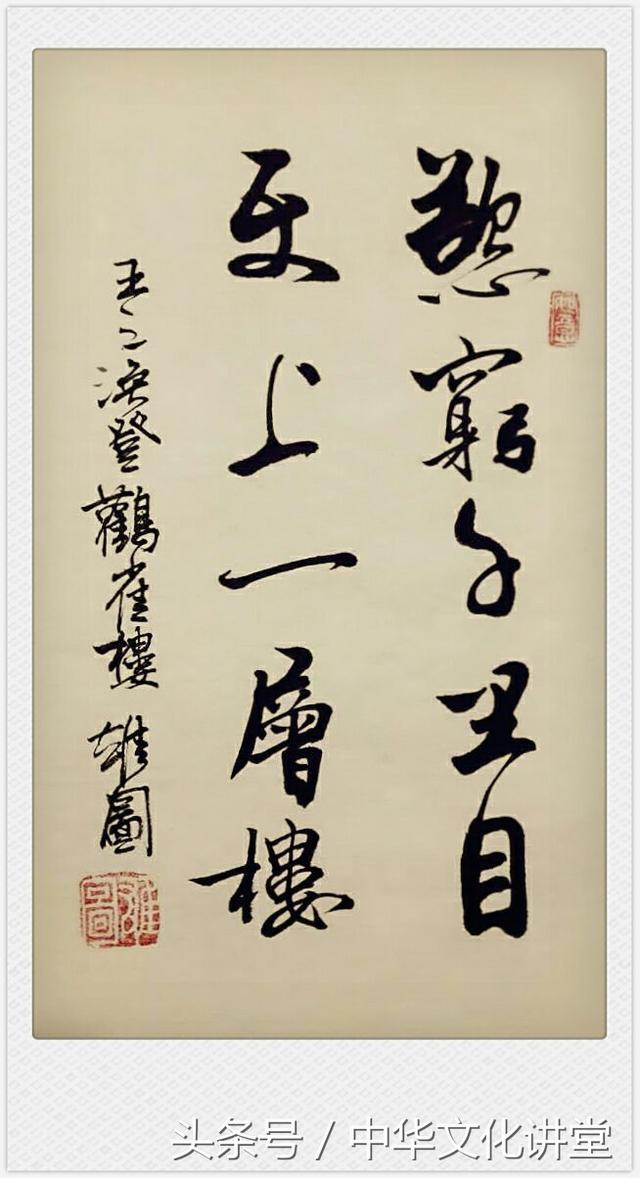 慾窮千里目
更上一層樓
王之渙登鸛雀樓 雄圖
雄圖
头条号 / 中华文化讲堂